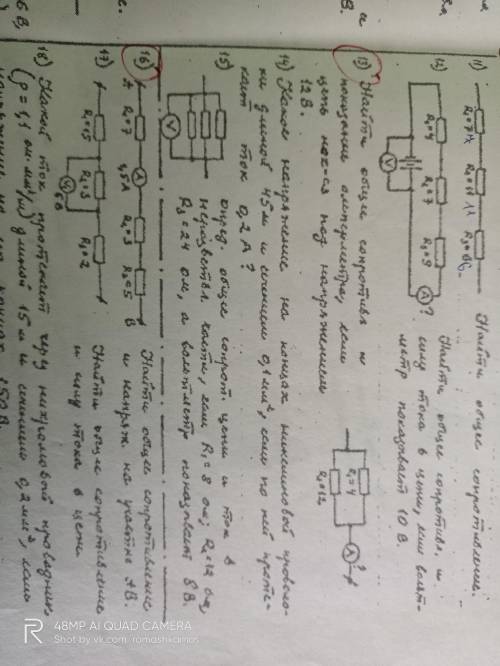 11) R₁=7 R₂=11
Найти общее сопротивление.
12) R₁=4 R₂=7 R₃=9
V A ?
Найти общее сопротивл. и
силу тока в цепи, если вольт-
метр показывает 10 В.
13) Найти общее сопротивл. и
показания амперметра, если
цепь нах-ся под напряжением
12 В.
R₁=4
R₂=12
A ?
14) Какое напряжение на концах никелиновой проволо-
ки длиной 45 м и сечением 0,1 мм², если по ней проте-
кает ток 0,2 А?
15) V
опред. общее сопрот. цепи и ток в
неразветвл. части, если R₁=8 ом; R₂=12 ом,
R₃=24 ом, а вольтметр показывает 8 В.
16) A R₁=7 A R₂=3 R₃=5 B
Найти общее сопротивление
и напряж. на участке АВ.
17) R₁=15 R₂=3 R₃=2
V 6 В
Найти общее сопротивление
и силу тока в цепи
18) Какой ток протекает через нихромовый проводник
(ρ=1,1 ом·мм²/м) длиной 15 м и сечением 0,2 мм², если
REDMI NOTE
48MP AI QUAD CAMERA
Shot by vk.com_romashkamos